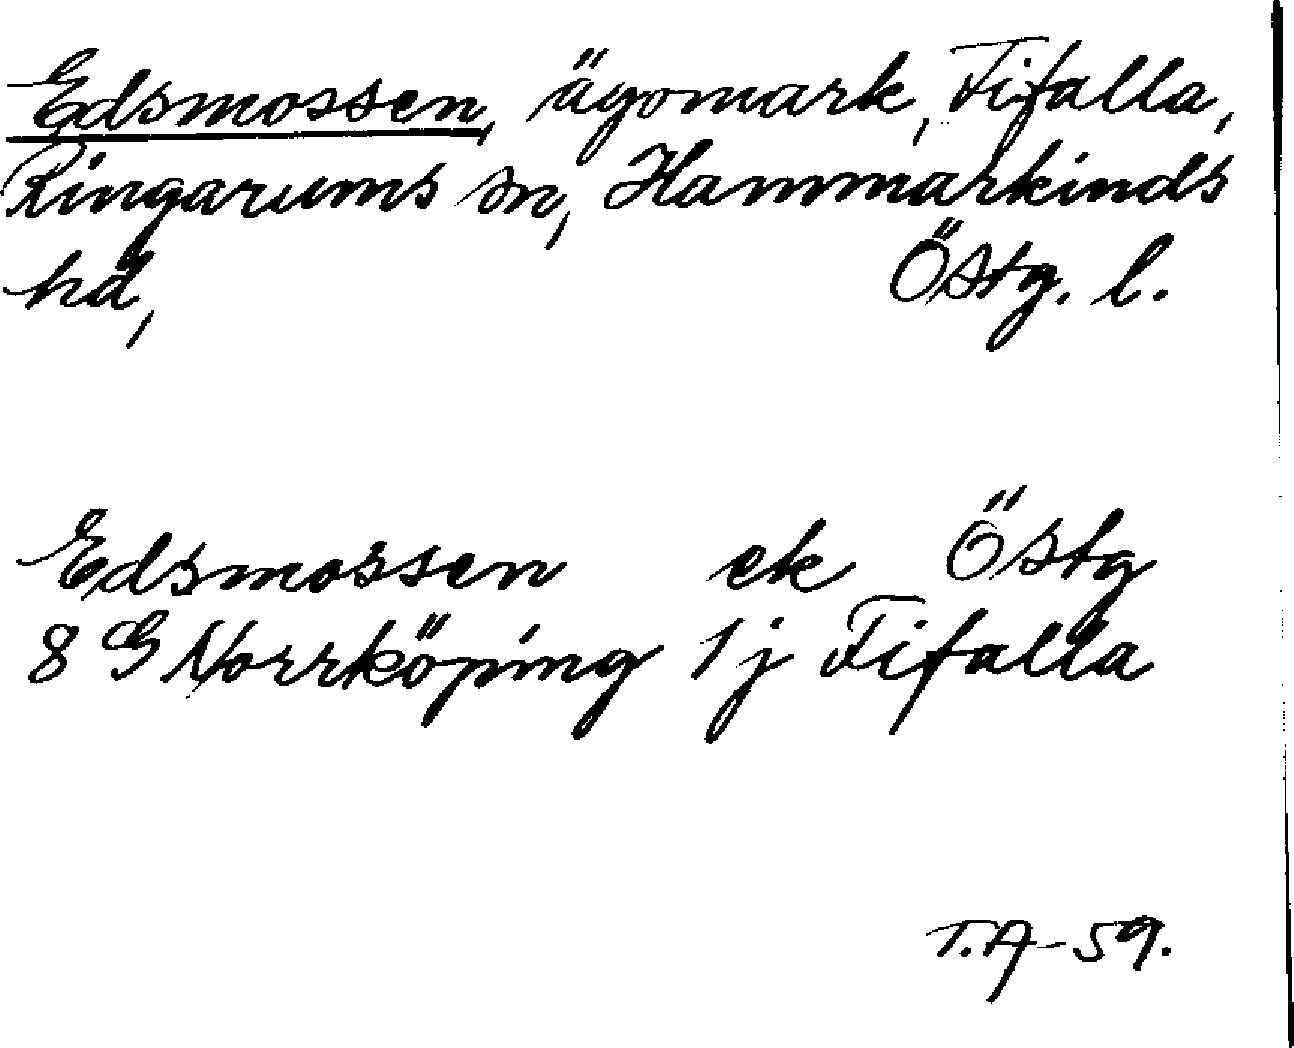 Edsmossen, ägomark, Fifalla,
Ringarums sn, Hammarkinds
hd, Östg. l.
Edsmossen ek Östg
8 G Norrköping 1j Fifalla
T.A-59.